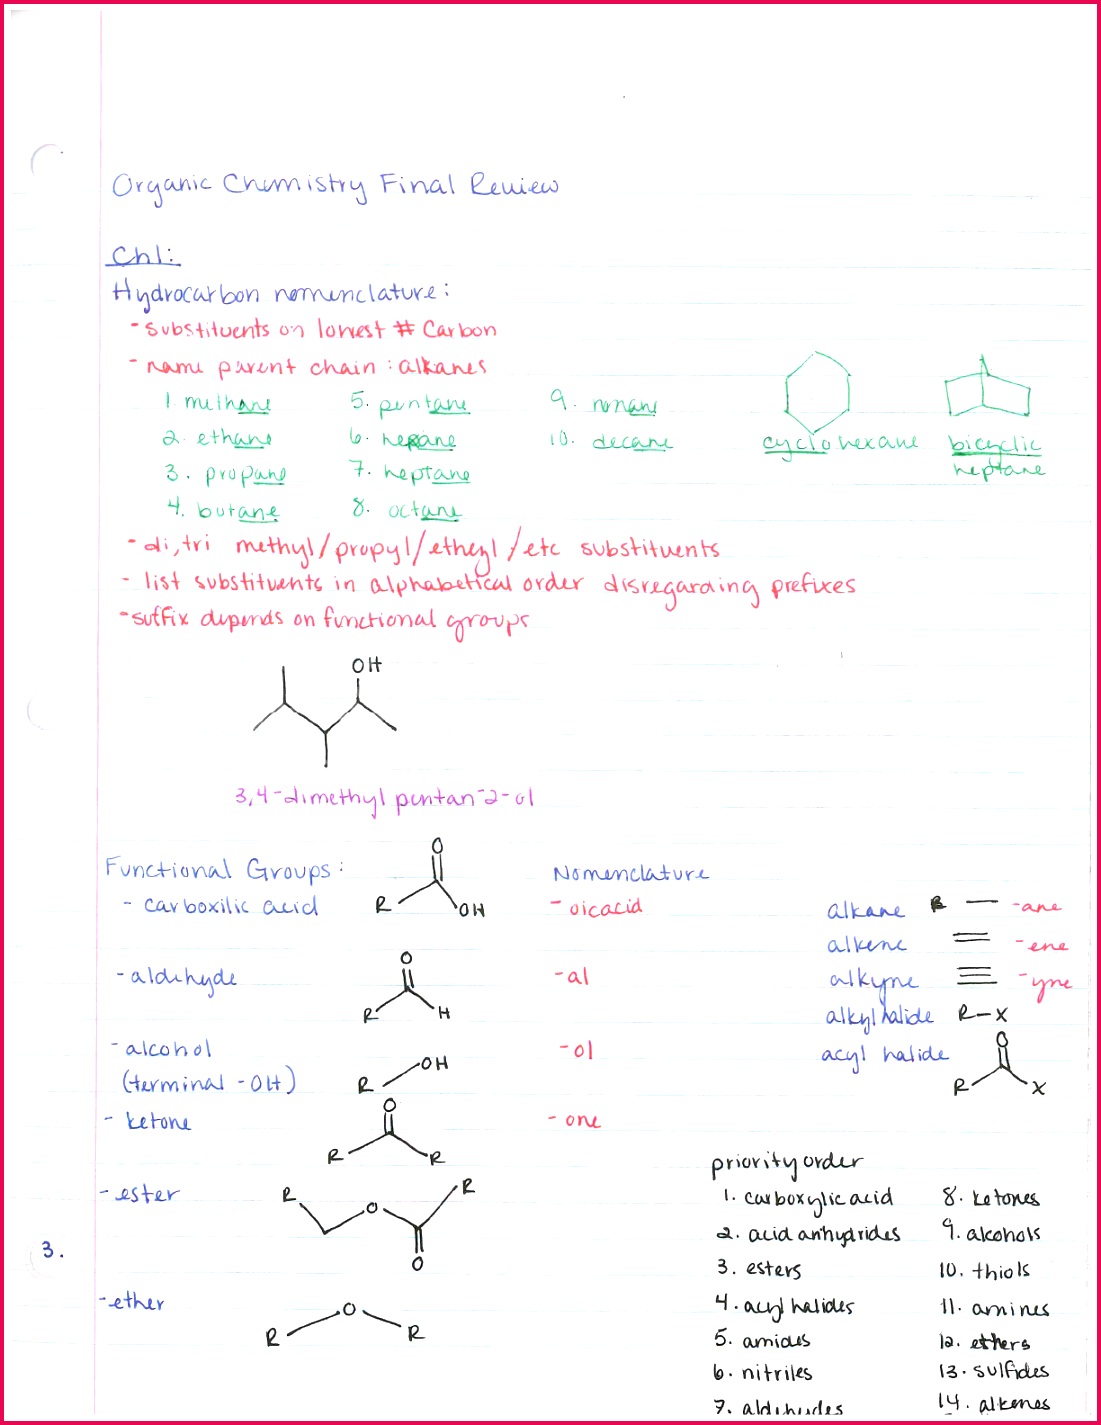 Organic Chemistry Final Review
Ch1:
Hydrocarbon nomenclature:
- substituents on lowest # Carbon
- name parent chain : alkanes
1. methane 5. pentane 9. nonane
2. ethane 6. hexane 10. decane
3. propane 7. heptane
4. butane 8. octane
cyclohexane
bicyclic
heptane
- di, tri methyl/propyl/ethyl/etc substituents
- list substituents in alphabetical order disregarding prefixes
- suffix depends on functional groups
OH
3,4-dimethyl pentan-2-ol
Functional Groups: Nomenclature
- carboxilic acid R O OH - oicacid
- aldehyde R O H - al
- alcohol R OH - ol
(terminal -OH)
- ketone R O R - one
- ester R O O R
3.
- ether R O R
alkane R — -ane
alkene -ene
alkyne -yne
alkyl halide R-X
acyl halide R O X
priority order
1. carboxylic acid
2. acid anhydrides
3. esters
4. acyl halides
5. amides
6. nitriles
7. aldehydes
8. ketones
9. alcohols
10. thiols
11. amines
12. ethers
13. sulfides
14. alkenes